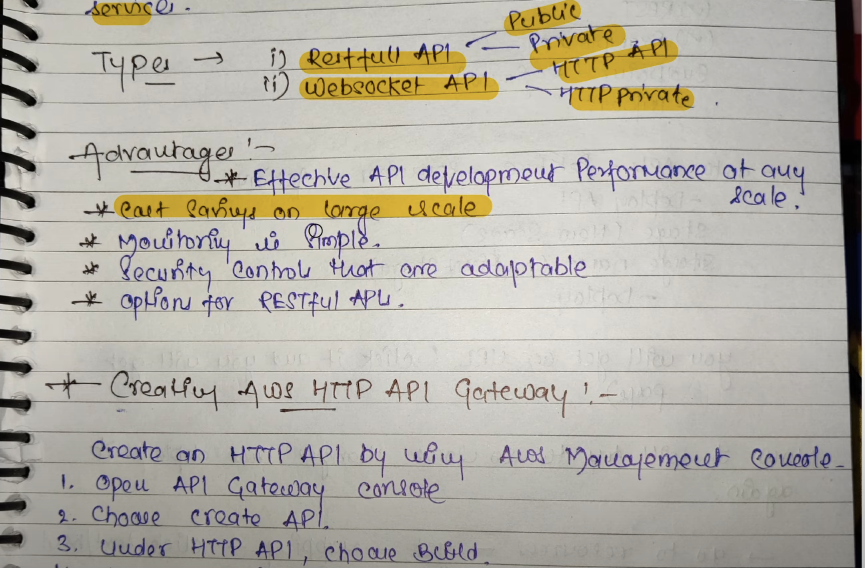 service.
Public
Types → i) Restfull API Private
ii) Websocket API HTTP API
HTTP private.
Advantages :-
* Effective API development Performance at any
scale.
* cost savings on large scale
* Monitoring is simple.
* Security controls that are adaptable
* option for RESTful APIs.
* Creating AWS HTTP API Gateway :-
Create an HTTP API by using AWS Management console-
1. Open API Gateway console
2. Choose create API.
3. Under HTTP API, choose Build.